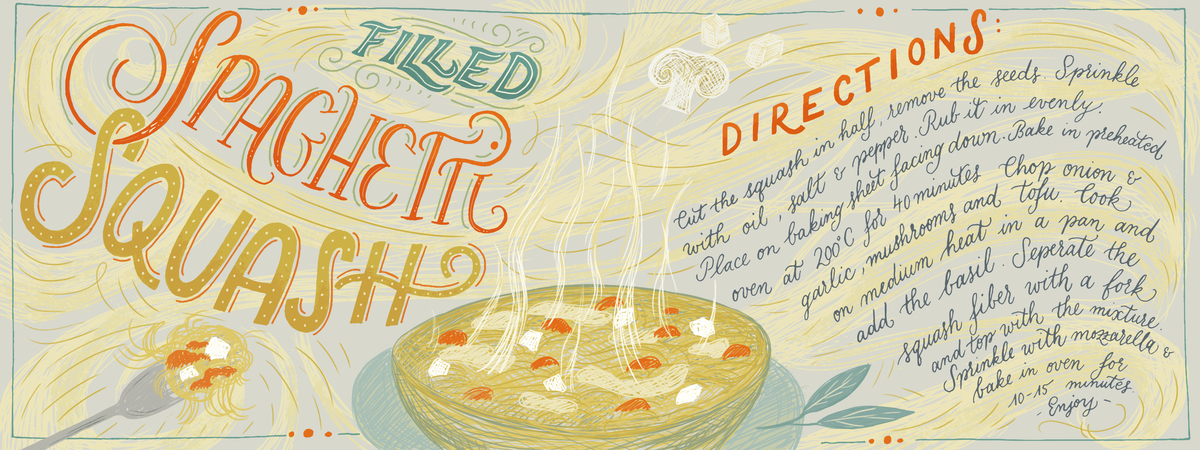 FILLED
SPAGHETTI
SQUASH
DIRECTIONS:
Cut the squash in half, remove the seeds. Sprinkle
with oil, salt & pepper. Rub it in evenly.
Place on baking sheet facing down. Bake in preheated
oven at 200°C for 40 minutes Chop onion &
garlic, mushrooms and tofu. Cook
on medium heat in a pan and
add the basil. Seperate the
squash fiber with a fork
and top with the mixture.
Sprinkle with mozzarella &
bake in oven for
10-15 minutes
- Enjoy -